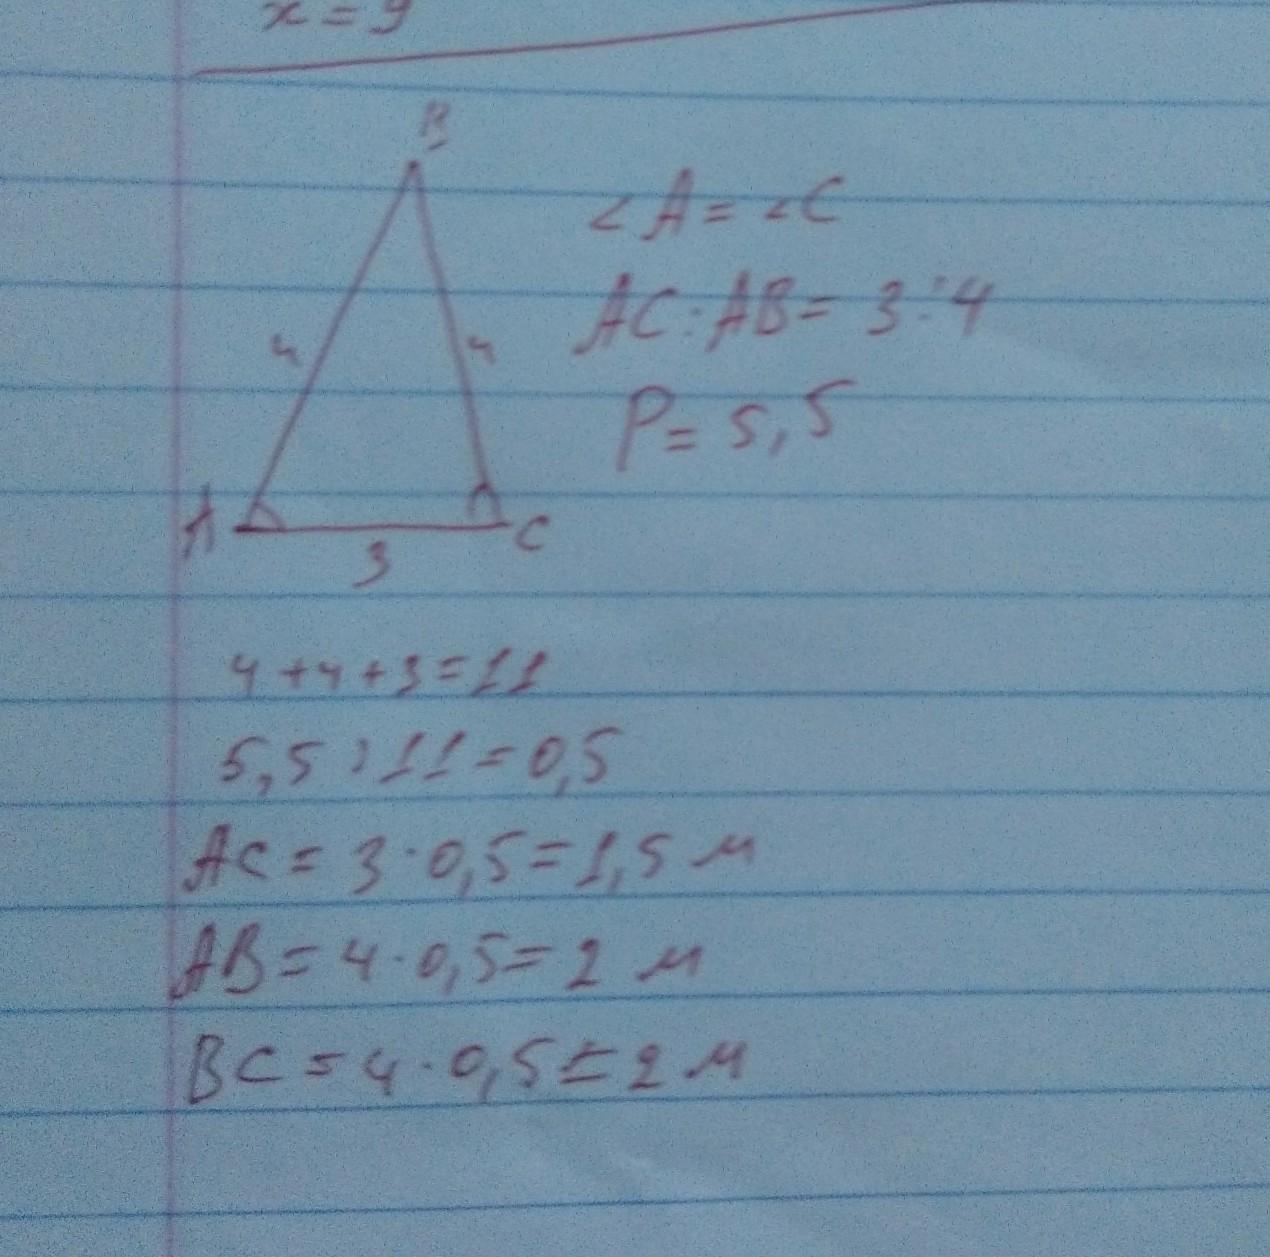 x = 9
B
∠A = ∠C
AC : AB = 3 : 4
4
4
P = 5,5
A
C
3
4 + 4 + 3 = 11
5,5 : 11 = 0,5
AC = 3 · 0,5 = 1,5 м
AB = 4 · 0,5 = 2 м
BC = 4 · 0,5 = 2 м